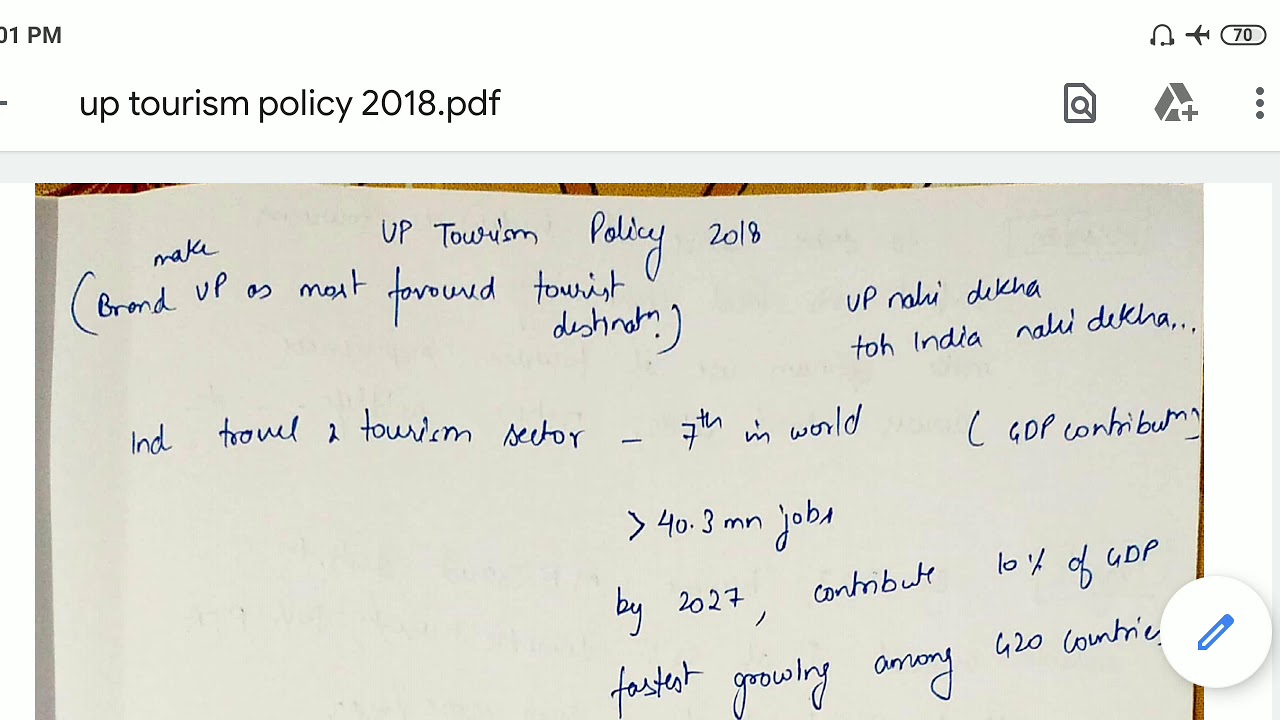 01 PM
70
up tourism policy 2018.pdf
UP Tourism Policy 2018
make
(Brand UP as most favoured tourist
destinatn.)
UP nahi dekha
toh India nahi dekha...
Ind travel & tourism sector – 7th in world ( GDP contributn)
> 40.3 mn jobs
by 2027, contribute 10% of GDP
fastest growing among G20 countries